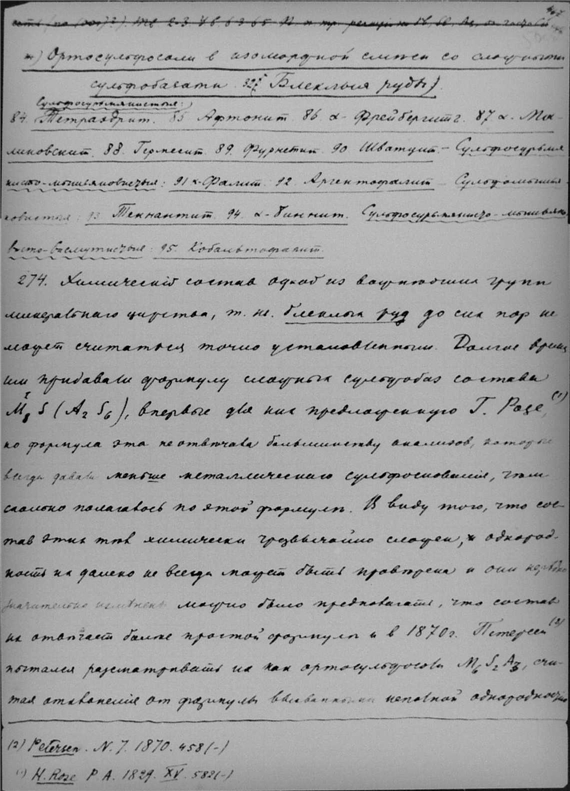 m) Ортосульфосоли в изоморфной смеси со сложными
сульфобазати. Блеклыя руды).
Сульфосурьмянистыя:
84. Тетраэдрит. 85 Афтонит 86 α-Фрейбергит. 87 α-Ма-
линовскит. 88. Гермезит. 89. Фурнетит. 90 Шватцит – Сульфосурьмя
нисто-мышьяковистыя: 91 α-Фалит. 92. Аргентофалит – Сульфомышья-
ковистыя: 93 Теннантит. 94. α-Биннит. Сульфосурьмянисто-мышьяко
висто-висмутистыя: 95. Кобальтофалит.
274. Химическій состав одной из важнейших групп
минеральнаго царства, т. н. блеклых руд до сих пор не
может считаться точно установленным. Долгое время
им придавали формулу сложных сульфобаз состава
M₈S(A₂S₆), впервые для них предложенную Г. Розе,⁽¹⁾
но формула эта не отвечала большинству анализов, которые
всегда давали меньше металлическаго сульфоснованія, чем
сколько полагалось по этой формуле. В виду того, что сос-
тав этих тел химически чрезвычайно сложен, и однород-
ность их далеко не всегда может быть проверена и они нередко
значительно изменены можно было предполагать, что состав
их отвечает более простой формуле и в 1870 г. Петерсен⁽²⁾
пытался разсматривать их как ортосульфосоли M₆S₂A₃, счи-
тая отклонения от формулы вызванными неполной однородностью
(2) Petersen. N. J. 1870. 458(–)
(1) H. Rose P. A. 1829. XV. 582(–)